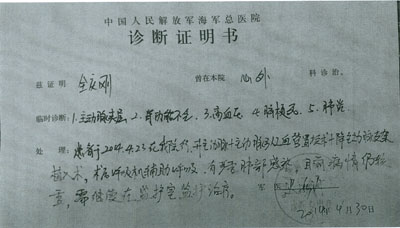 中国人民解放军海军总医院
诊断证明书
兹证明 全庆刚 曾在本院 心外 科诊治。
临时诊断：1.主动脉夹层 2.肾功能不全 3.高血压 4.肺栓塞 5.肺炎
处理：患者于2014.4.23在我院行升主动脉+主动脉弓 血管置换术+降主动脉支架
植入术，术后呼吸机辅助呼吸，有严重肺部感染，目前病情仍较
重，需继续在监护室监护治疗。
军医
2014年4月30日